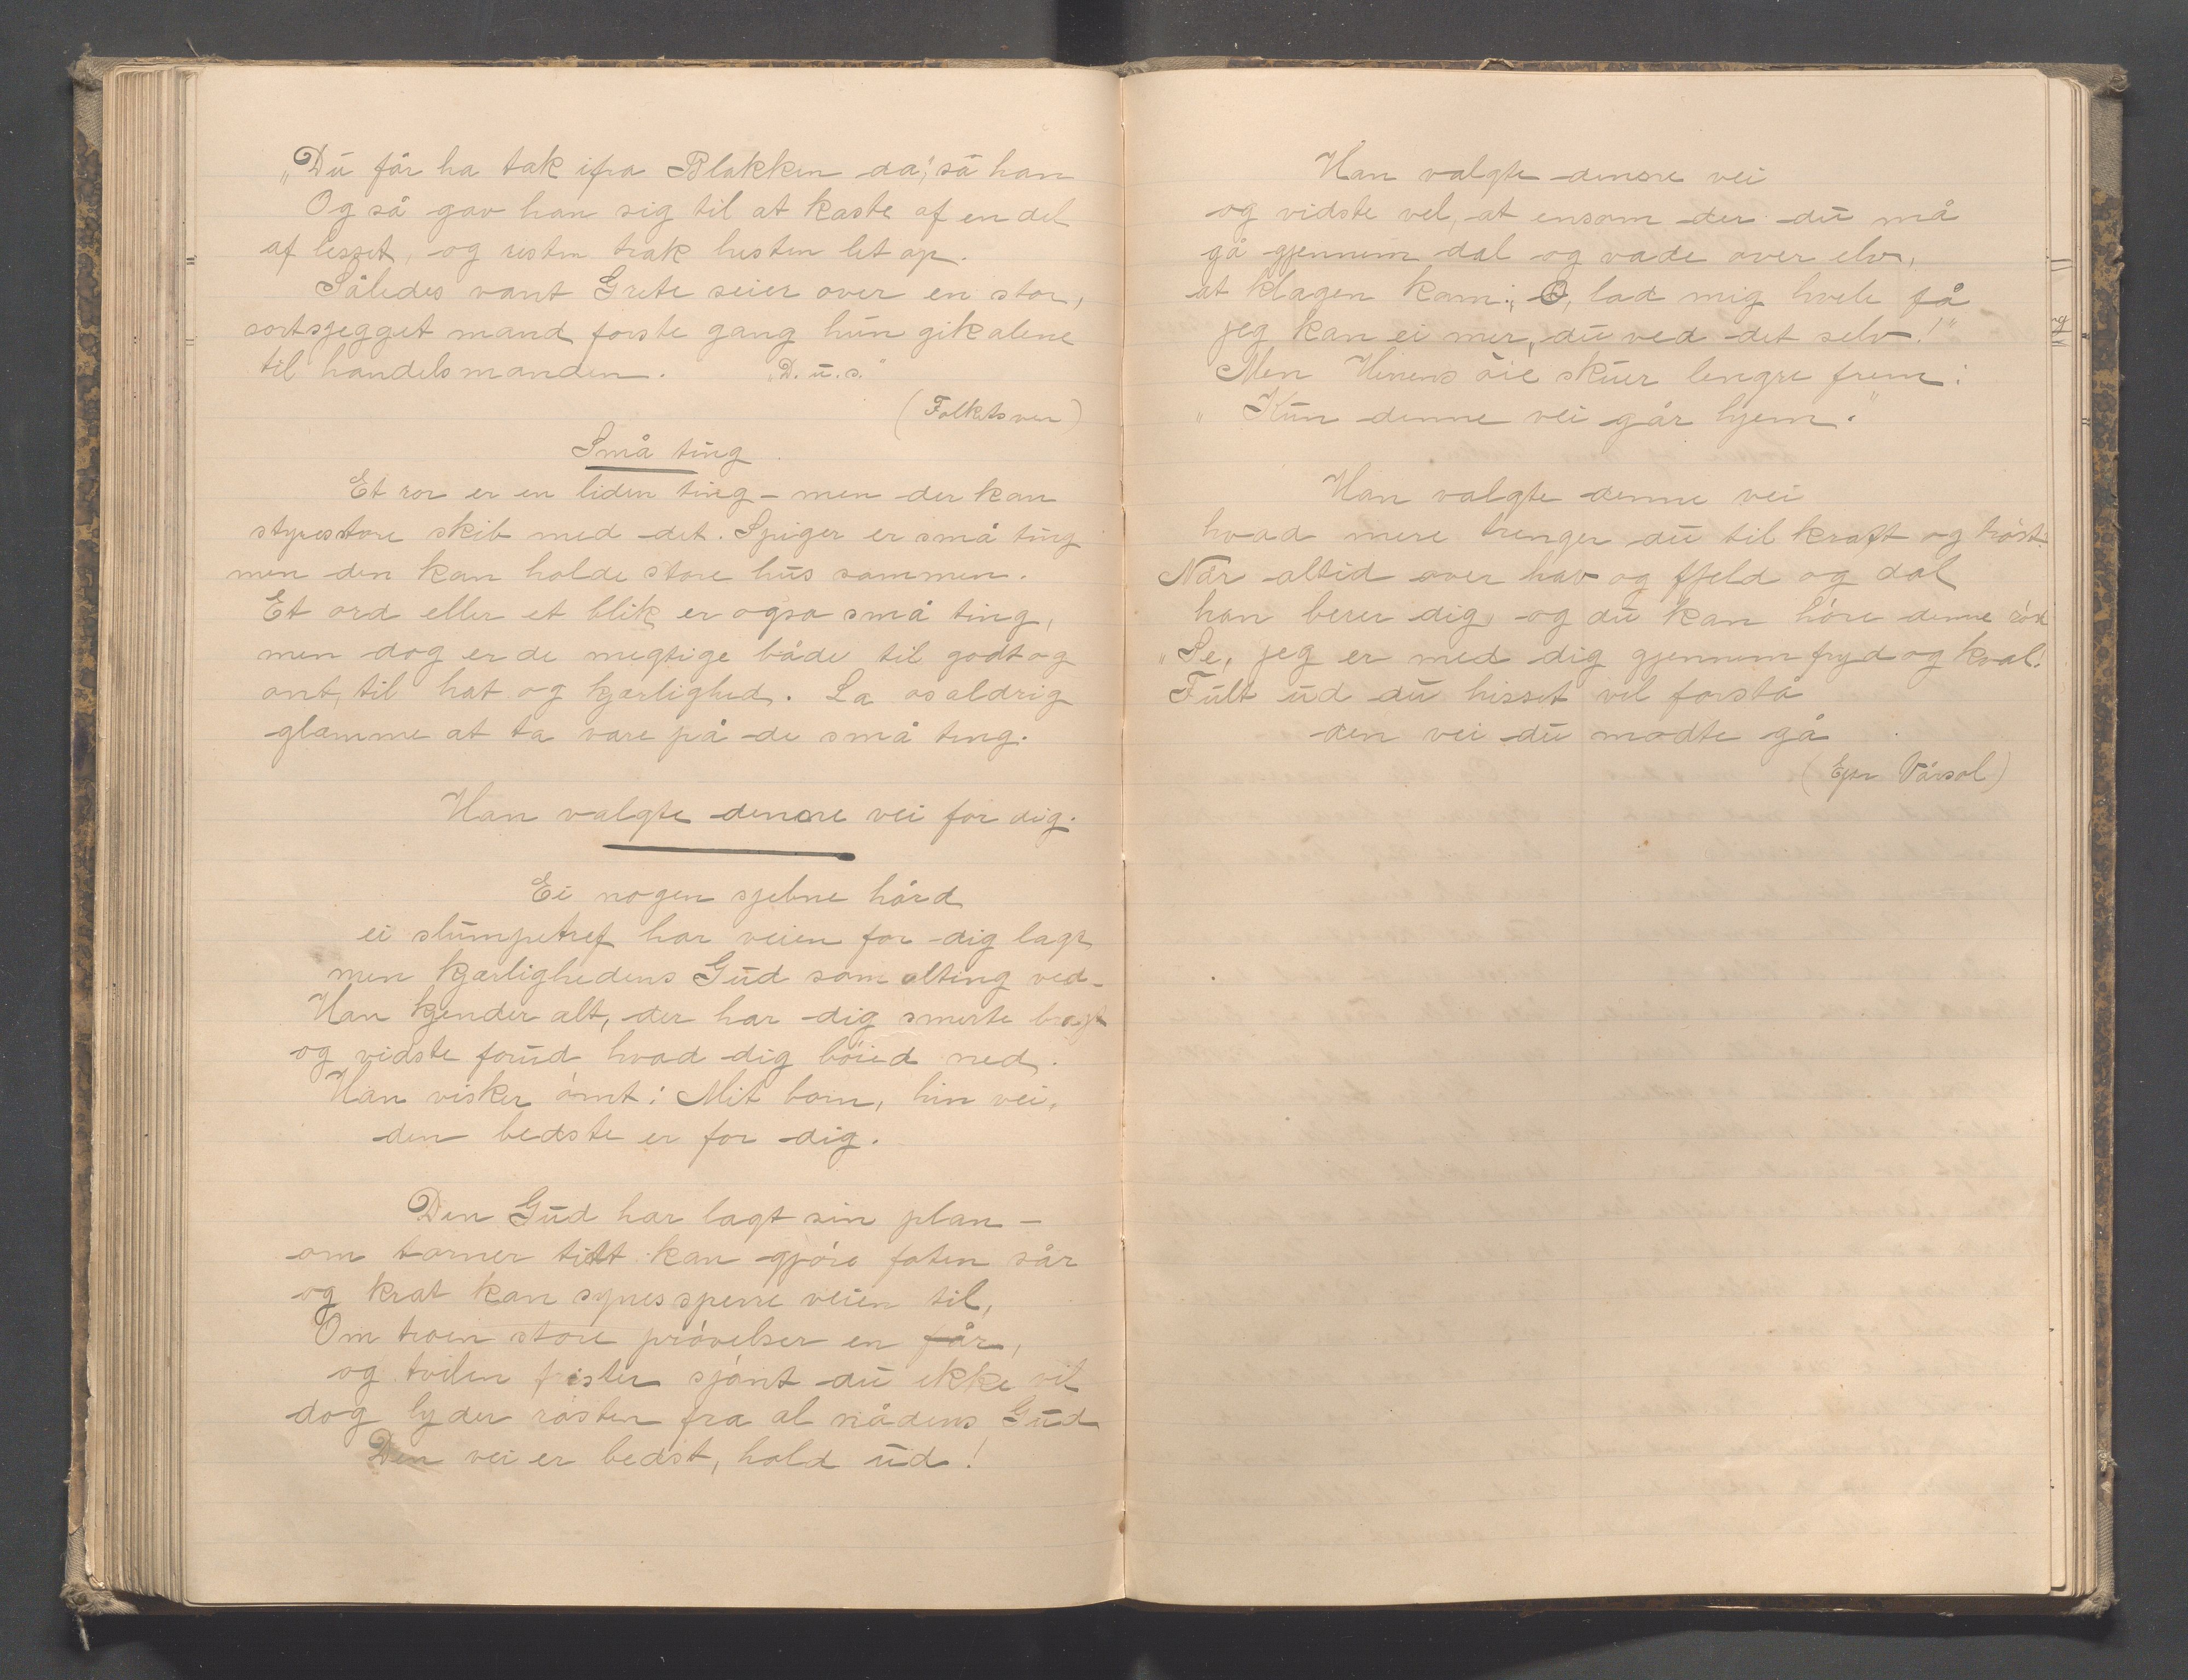 „Du får ha tak ifra Blakken da", sa han
Og så gav han sig til at kaste af en del
af lesset, og resten trak hesten let op.
Således vant Grete seier over en stor,
sortsjegget mand forste gang hun gik alene
til handelsmanden. „D. u. s."
(Folkets ven)
Små ting.
Et ror er en liden ting – men der kan
styres store skib med det. Spiger er små ting
men den kan holde store hus sammen.
Et ord eller et blik er ogsa små ting,
men dog er de megtige både til godt og
ont, til hat og kjærlighed. La os aldrig
glemme at ta vare på de små ting.
Han valgte denne vei for dig.
Ei nogen sjebne hård
ei slumpetref har veien for dig lagt
men kjærlighedens Gud som alting ved –
Han kjender alt, der har dig smerte bragt
og vidste forud hvad dig böied ned.
Han visker ömt: Mit barn, hin vei,
den bedste er for dig.
Den Gud har lagt sin plan –
om torner tidt kan gjöre foten sår
og krat kan synes sperre veien til,
Om troen store prövelser en får,
og tvilen frister sjönt du ikke vil
dog lyder rösten fra al nådens Gud
Den vei er bedst, hold ud!
Han valgte denne vei
og vidste vel, at ensom der du må
gå gjennem dal og vade over elv,
at klagen kom: „O, lad mig hvele få
jeg kan ei mer, du ved det selv!"
Men Herrens öie skuer lengre frem:
„Kun denne vei går hjem."
Han valgte denne vei
hvad mere trenger du til kraft og tröst:
Når altid over hav og fjeld og dal
han berer dig, og du kan höre denne röst
„Se, jeg er med dig gjennem fryd og kval!
Fult ud du hisset vil forstå
den vei du modte gå
(Efter Vårsol)